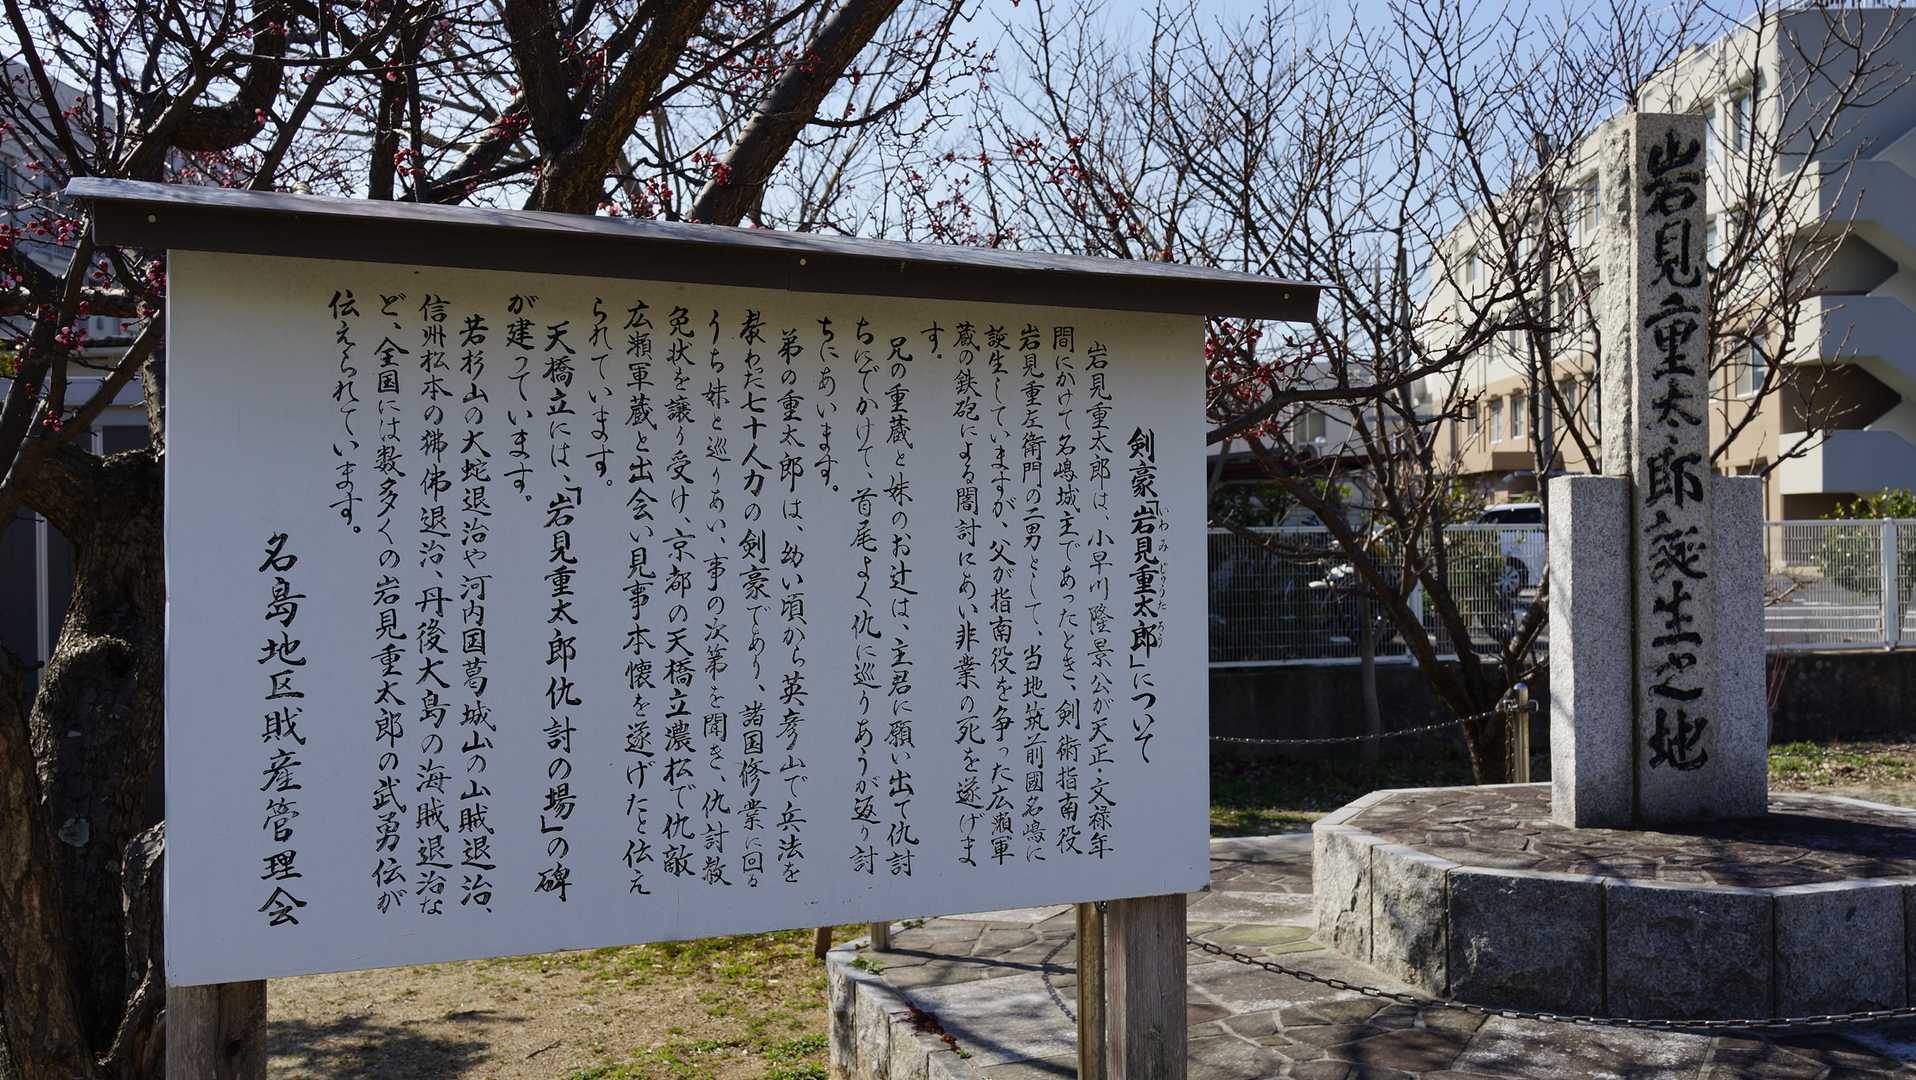 剣豪「岩見重太郎」について
いわみじゅうたろう
岩見重太郎は、小早川隆景公が天正・文禄年
間にかけて名嶋城主であったとき、剣術指南役
岩見重左衛門の二男として、当地筑前國名嶋に
誕生していますが、父が指南役を争った広瀬軍
蔵の鉄砲による闇討にあい非業の死を遂げま
す。
兄の重蔵と妹のお辻は、主君に願い出て仇討
ちにでかけて、首尾よく仇に巡りあうが返り討
ちにあいます。
弟の重太郎は、幼い頃から英彦山で兵法を
教わった七十人力の剣豪であり、諸国修業に回る
うち妹と巡りあい、事の次第を聞き、仇討赦
免状を譲り受け、京都の天橋立濃松で仇敵
広瀬軍蔵と出会い見事本懐を遂げたと伝え
られています。
天橋立には、「岩見重太郎仇討の場」の碑
が建っています。
若杉山の大蛇退治や河内国葛城山の山賊退治、
信州松本の狒佛退治、丹後大島の海賊退治な
ど、全国には数多くの岩見重太郎の武勇伝が
伝えられています。
名島地区財産管理会
岩見重太郎誕生之地